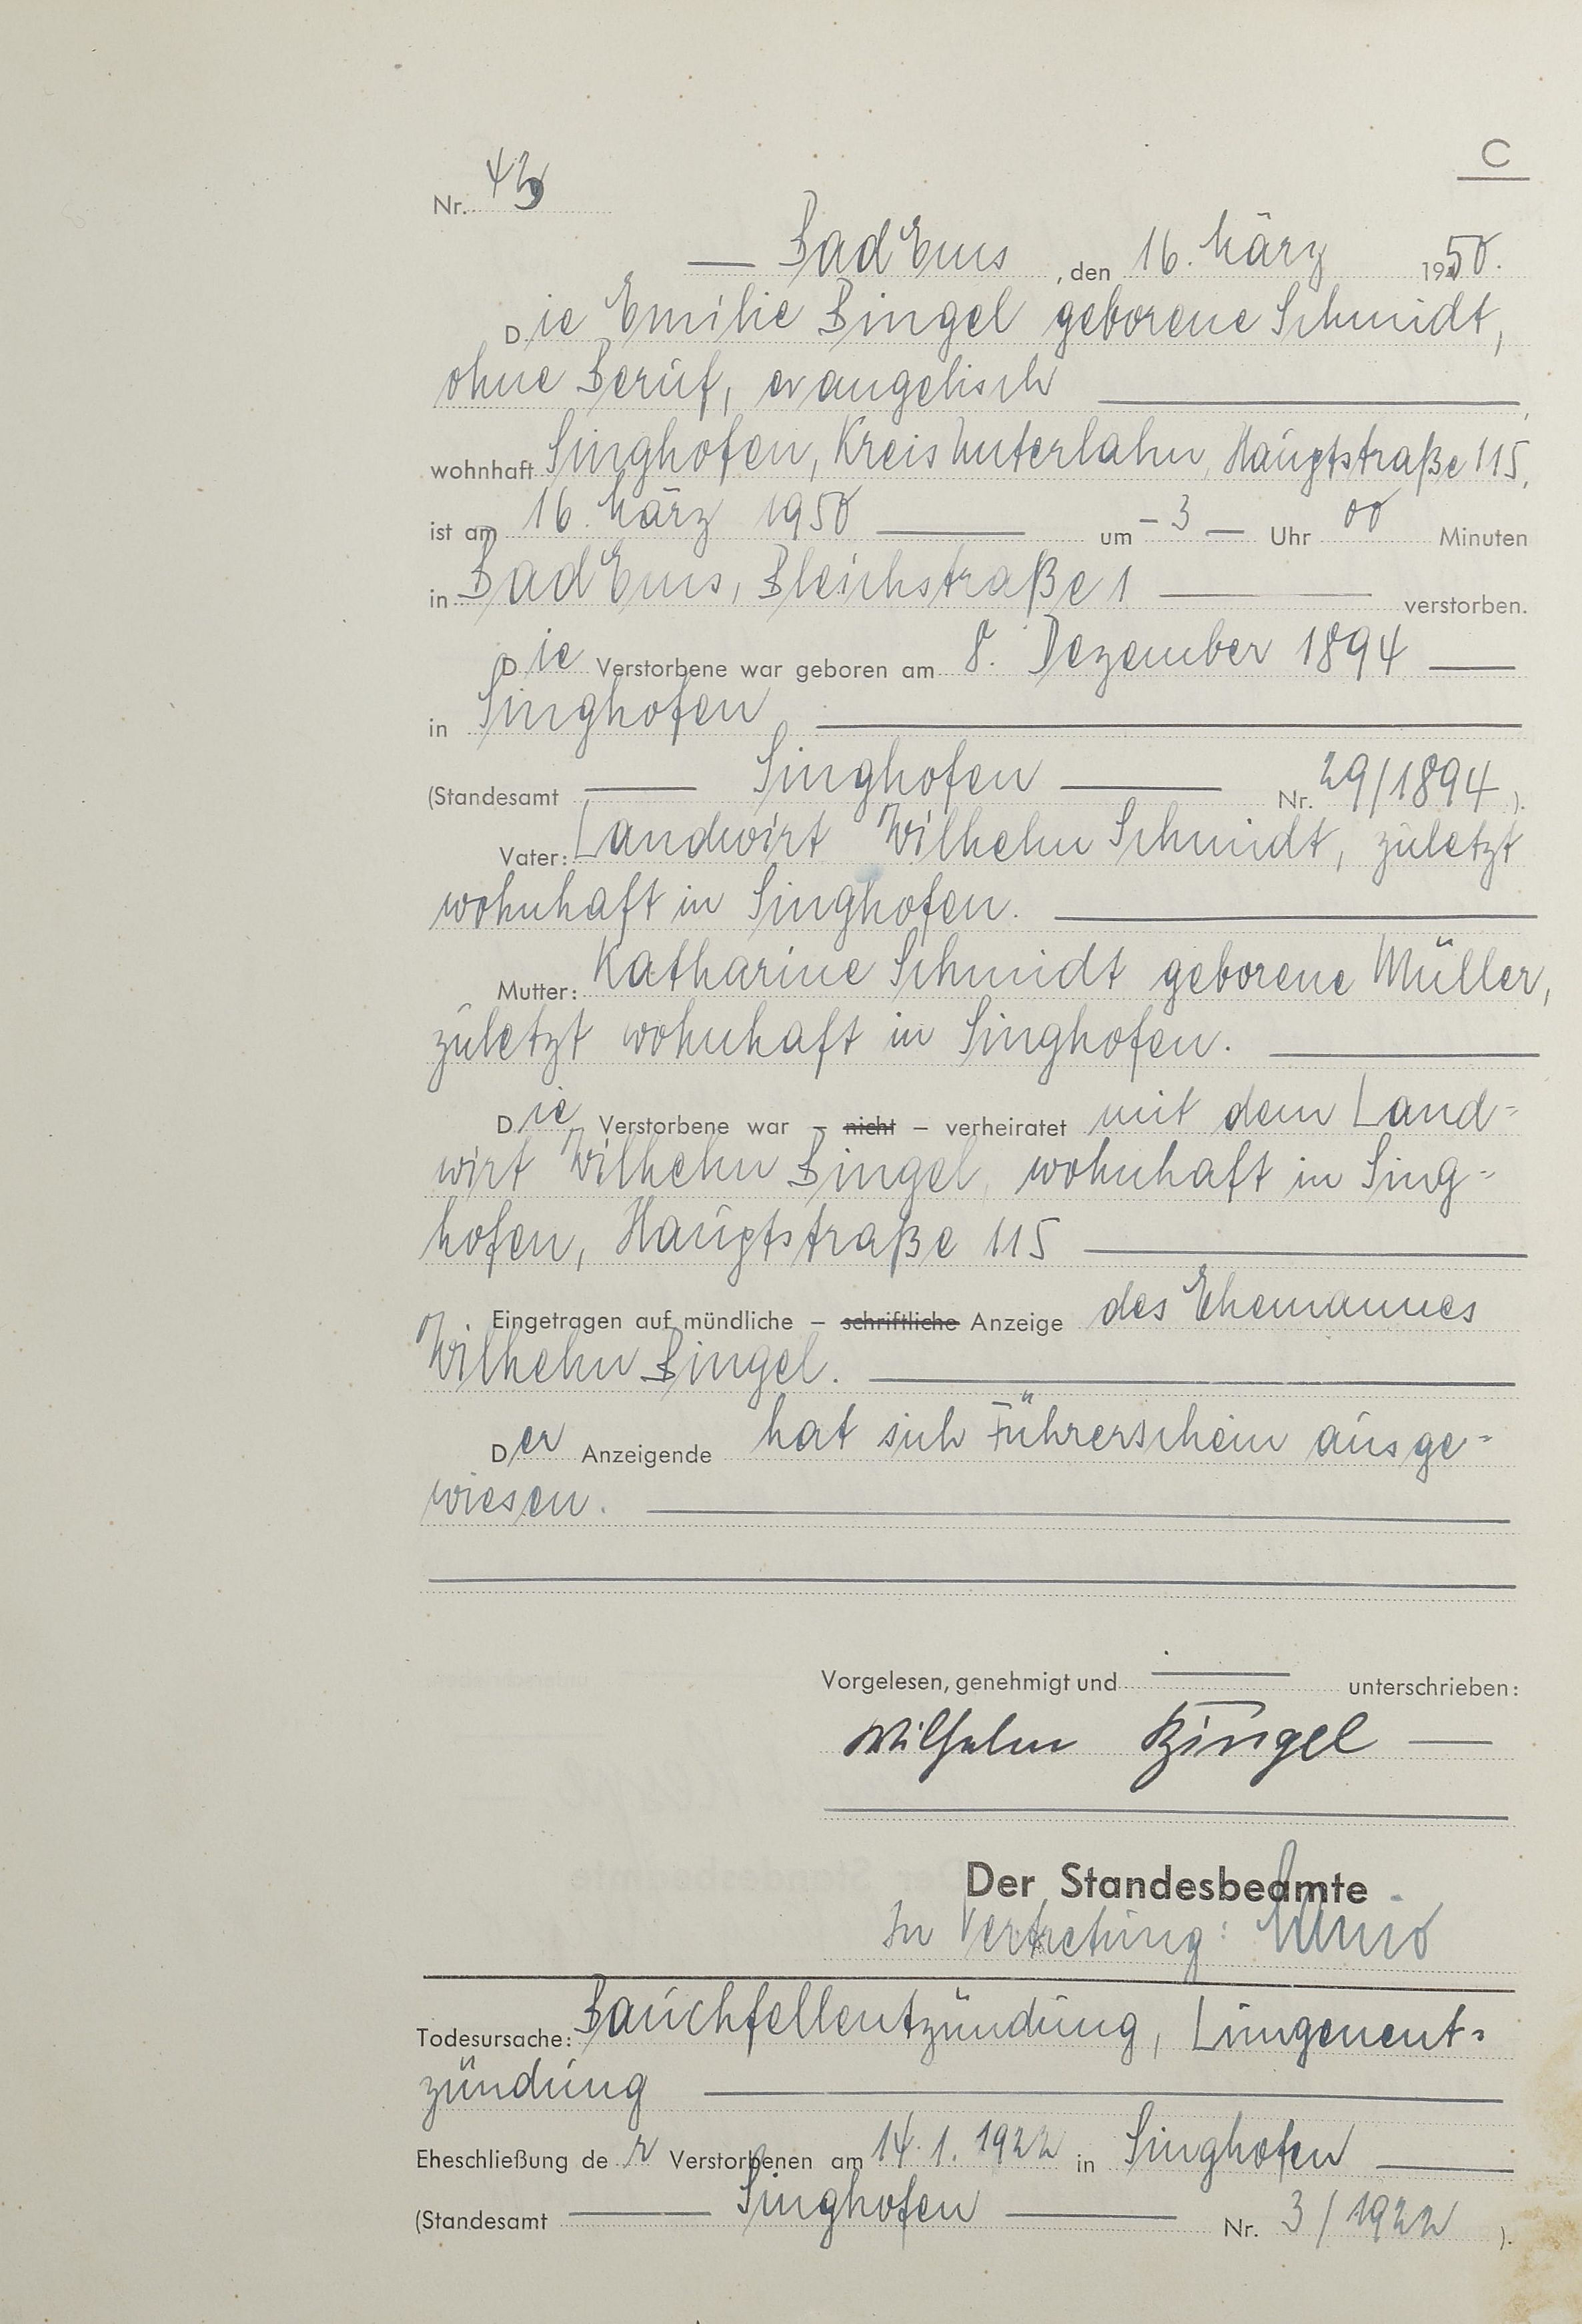 C
Nr. 43
— Bad Ems, den 16. März 1950.
Die Emilie Bingel geborene Schmidt,
ohne Beruf, evangelisch —,
wohnhaft Singhofen, Kreis Unterlahn, Hauptstraße 115,
ist am 16. März 1950 — um - 3 — Uhr 00 Minuten
in Bad Ems, Bleichstraße 1 — verstorben.
Die Verstorbene war geboren am 8. Dezember 1894 —
in Singhofen —
(Standesamt — Singhofen — Nr. 29/1894 ).
Vater: Landwirt Wilhelm Schmidt, zuletzt
wohnhaft in Singhofen. —
Mutter: Katharine Schmidt geborene Müller,
zuletzt wohnhaft in Singhofen. —
Die Verstorbene war – nicht – verheiratet mit dem Land-
wirt Wilhelm Bingel, wohnhaft in Sing-
hofen, Hauptstraße 115 —
Eingetragen auf mündliche – schriftliche Anzeige des Ehemannes
Wilhelm Bingel. —
Der Anzeigende hat sich Führerschein ausge-
wiesen. —
Vorgelesen, genehmigt und — unterschrieben:
Wilhelm Bingel —
Der Standesbeamte
In Vertretung:
Todesursache: Bauchfellentzündung, Lungenent-
zündung —
Eheschließung der Verstorbenen am 14. 1. 1922 in Singhofen —
(Standesamt — Singhofen — Nr. 3/1922 ).